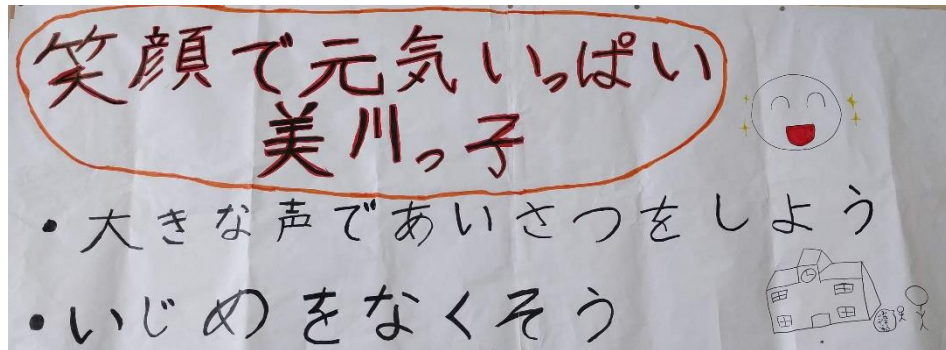 笑顔で元気いっぱい
美川っ子
・大きな声であいさつをしよう
・いじめをなくそう